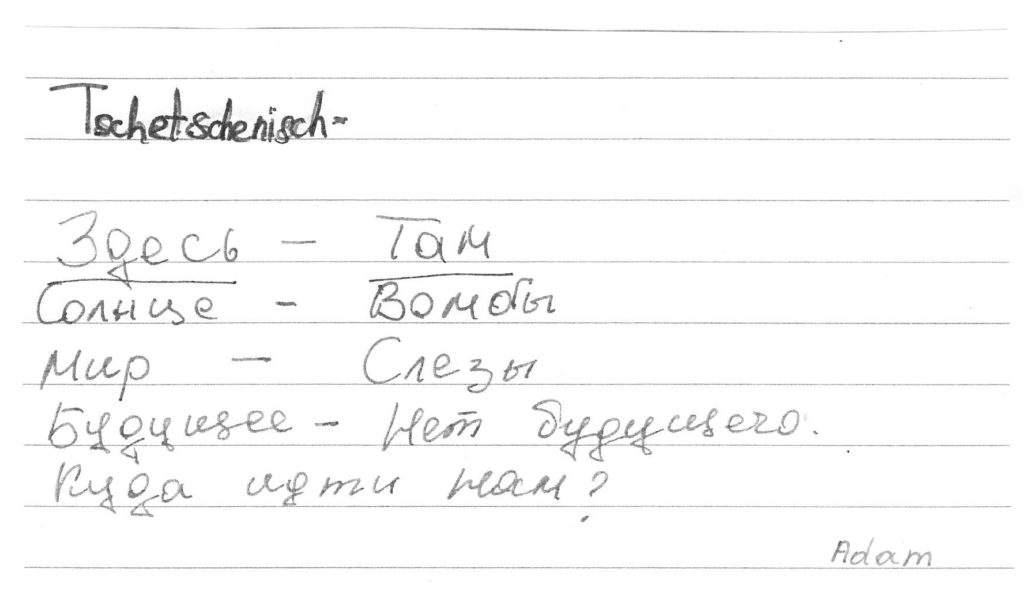 Tschetschenisch-
Здесь - Там
Солнце - Вомбы
Мир - Слезы
Будущее - Нет будущего.
Куда идти нам?
Adam